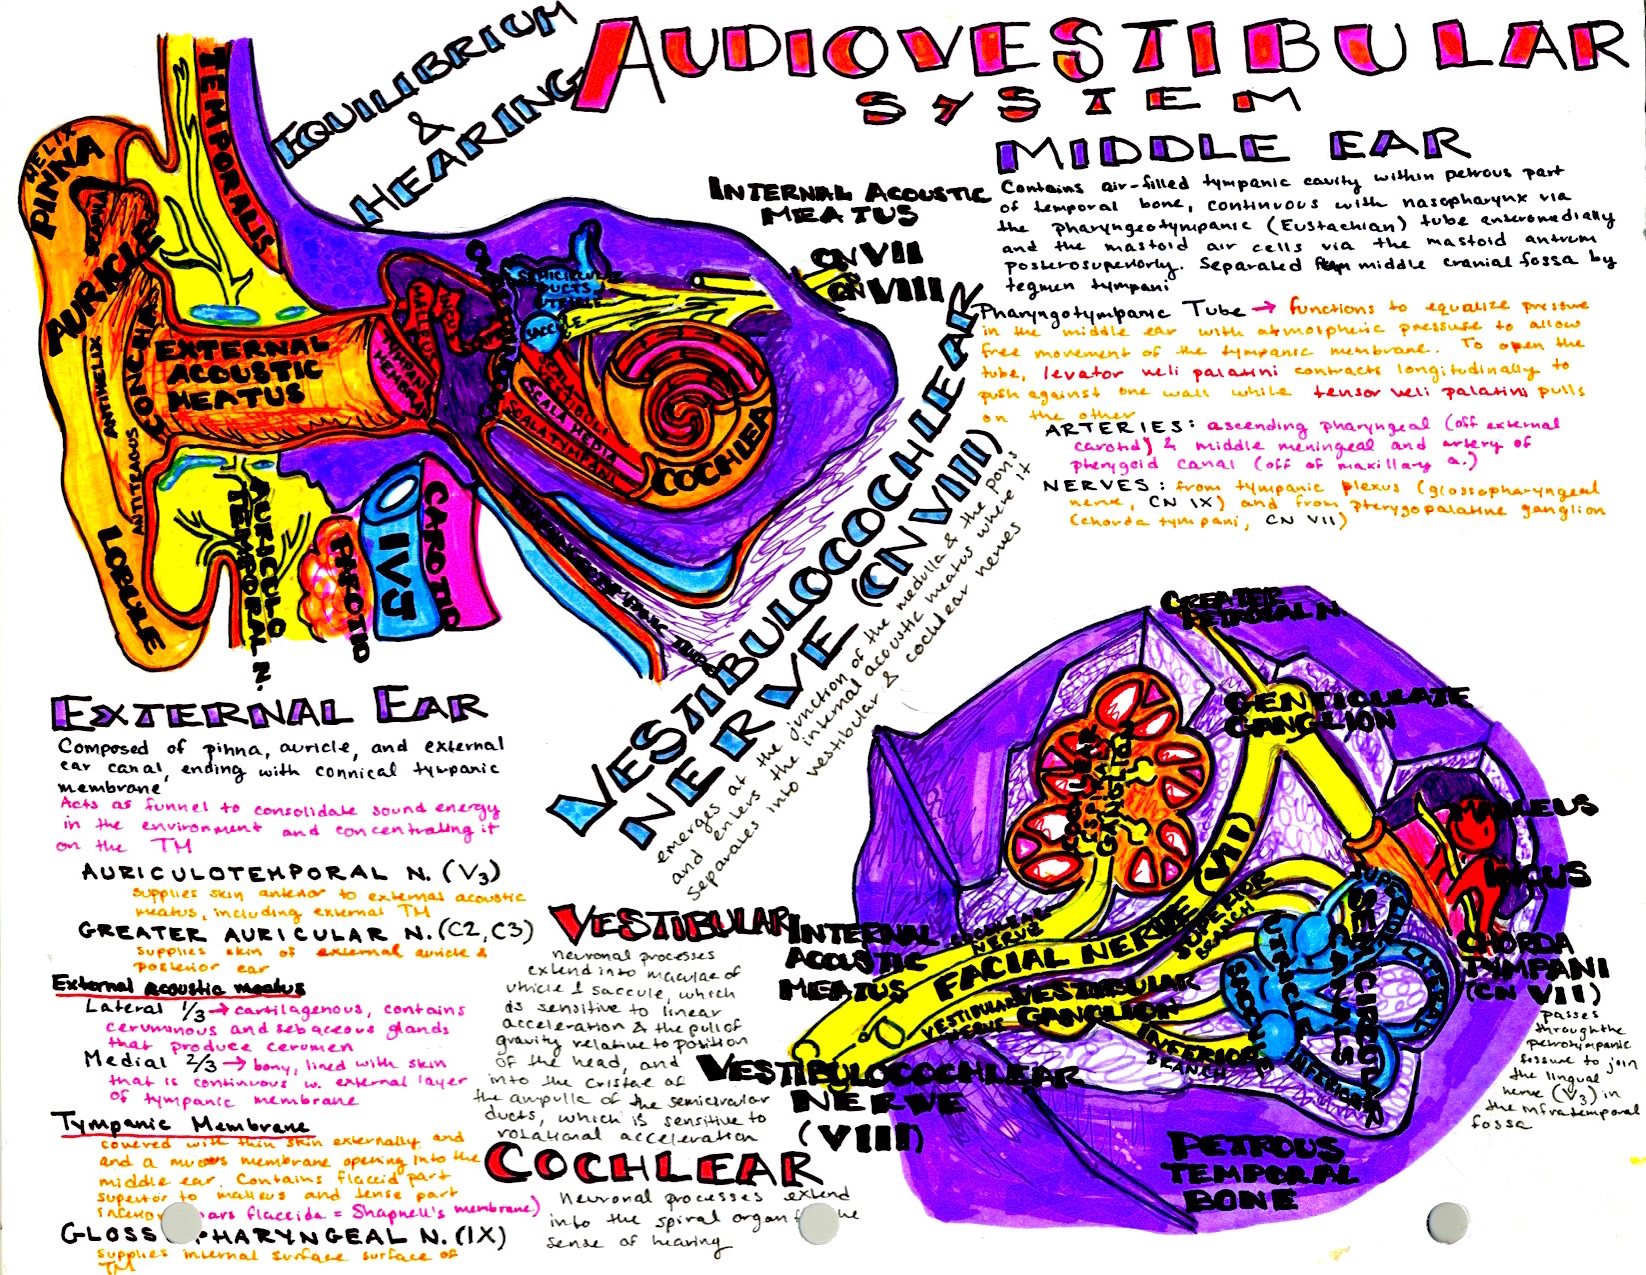 AUDIOVESTIBULAR
SYSTEM
EQUILIBRIUM
&
HEARING
HELIX
PINNA
AURICLE
ANTIHELIX
CONCHA
ANTITRAGUS
LOBULE
TEMPORALIS
EXTERNAL
ACOUSTIC
MEATUS
TYMPANIC
MEMBRANE
MALLEUS
INCUS
SEMICIRCULAR
DUCTS
UTRICLE
SACCULE
SCALA VESTIBULI
SCALA MEDIA
SCALA TYMPANI
COCHLEA
PHARYNGOTYMPANIC TUBE
AURICULO
TEMPORAL N.
PAROTID
IVJ
CAROTID
INTERNAL ACOUSTIC
MEATUS
CN VII
CN VIII
MIDDLE EAR
Contains air-filled tympanic cavity within petrous part
of temporal bone, continuous with nasopharynx via
the pharyngeotympanic (Eustachian) tube anteromedially
and the mastoid air cells via the mastoid antrum
posterosuperiorly. Separated from middle cranial fossa by
tegmen tympani
Pharyngotympanic Tube → functions to equalize pressure
in the middle ear with atmospheric pressure to allow
free movement of the tympanic membrane. To open the
tube, levator veli palatini contracts longitudinally to
push against one wall while tensor veli palatini pulls
on the other
ARTERIES: ascending pharyngeal (off external
carotid) & middle meningeal and artery of
pterygoid canal (off of maxillary a.)
NERVES: from tympanic plexus (glossopharyngeal
nerve, CN IX) and from pterygopalatine ganglion
(chorda tympani, CN VII)
VESTIBULOCOCHLEAR
NERVE (CN VIII)
emerges at the junction of the medulla & the pons
and enters the internal acoustic meatus where it
separates into vestibular & cochlear nerves
EXTERNAL EAR
Composed of pinna, auricle, and external
ear canal, ending with connical tympanic
membrane
Acts as funnel to consolidate sound energy
in the environment and concentrating it
on the TM
AURICULOTEMPORAL N. (V3)
supplies skin anterior to external acoustic
meatus, including external TM
GREATER AURICULAR N. (C2, C3)
supplies skin of external auricle &
posterior ear
External acoustic meatus
Lateral 1/3 → cartilagenous, contains
ceruminous and sebaceous glands
that produce cerumen
Medial 2/3 → bony, lined with skin
that is continuous w. external layer
of tympanic membrane
Tympanic Membrane
covered with thin skin externally and
and a mucous membrane opening into the
middle ear. Contains flaccid part
superior to malleus and tense part
inferior (pars flaccida = Shapnell's membrane)
GLOSSOPHARYNGEAL N. (IX)
supplies internal surface surface of
TM
VESTIBULAR
neuronal processes
extend into maculae of
utricle & saccule, which
is sensitive to linear
acceleration & the pull of
gravity relative to position
of the head, and
into the cristae of
the ampulle of the semicircular
ducts, which is sensitive to
rotational acceleration
COCHLEAR
Neuronal processes extend
into the spiral organ the
sense of hearing
GREATER
PETROSAL N.
GENTICULATE
GANGLION
COCHLEAR
SPIRAL
GANGLION
COCHLEAR
NERVE
FACIAL NERVE (VII)
SUPERIOR
BRANCH
INTERNAL
ACOUSTIC
MEATUS
VESTIBULAR
NERVE
VESTIBULAR
GANGLION
INFERIOR
BRANCH
VESTIBULOCOCHLEAR
NERVE
(VIII)
UTRICLE
SACCULE
SEMICIRCULAR
CANALS
SUPERIOR
LATERAL
INFERIOR
MALLEUS
INCUS
CHORDA
TYMPANI
(CN VII)
passes
through the
petrotympanic
fissure to join
the lingual
nerve (V3) in
the infratemporal
fossa
PETROUS
TEMPORAL
BONE